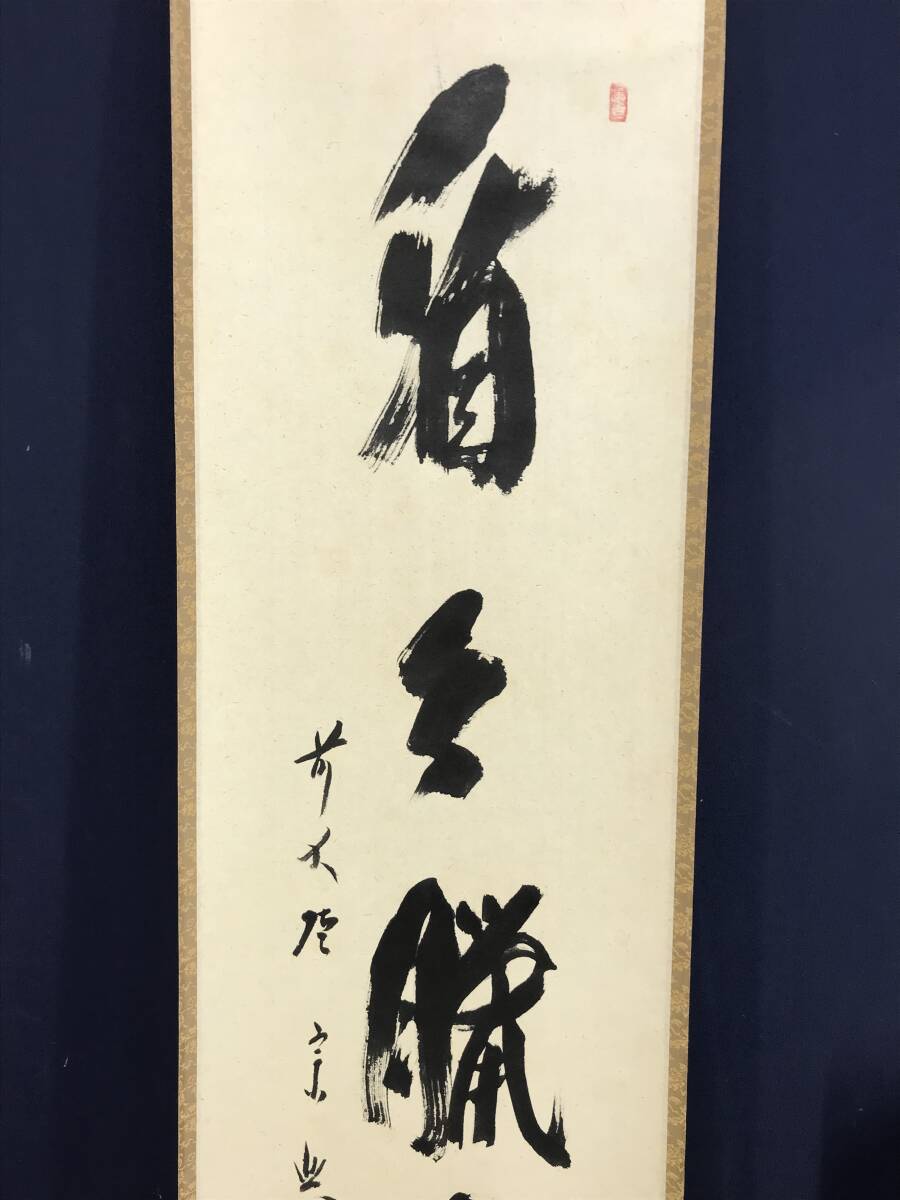 看々臘
前大徳 宗典